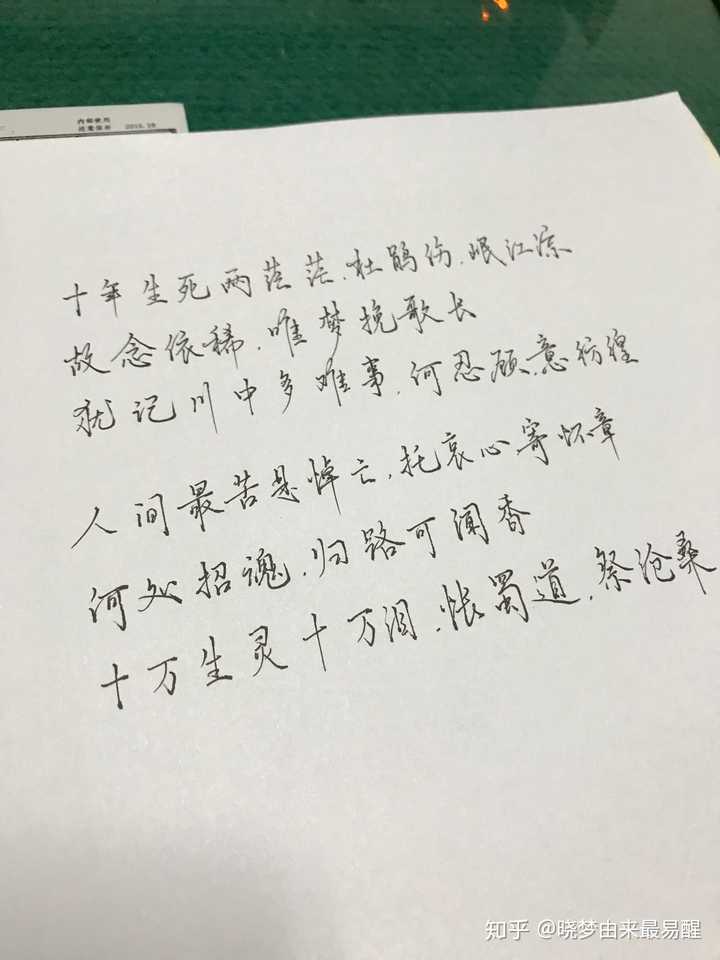 内部使用
2018.
十年生死两茫茫.杜鹃伤.岷江凉
故念依稀.唯梦挽歌长
犹记川中多难事.何忍顾.意彷徨
人间最苦是悼亡.托哀心.寄怀章
何处招魂.归路可闻香
十万生灵十万泪.怅蜀道.祭沧桑
知乎 @晓梦由来最易醒